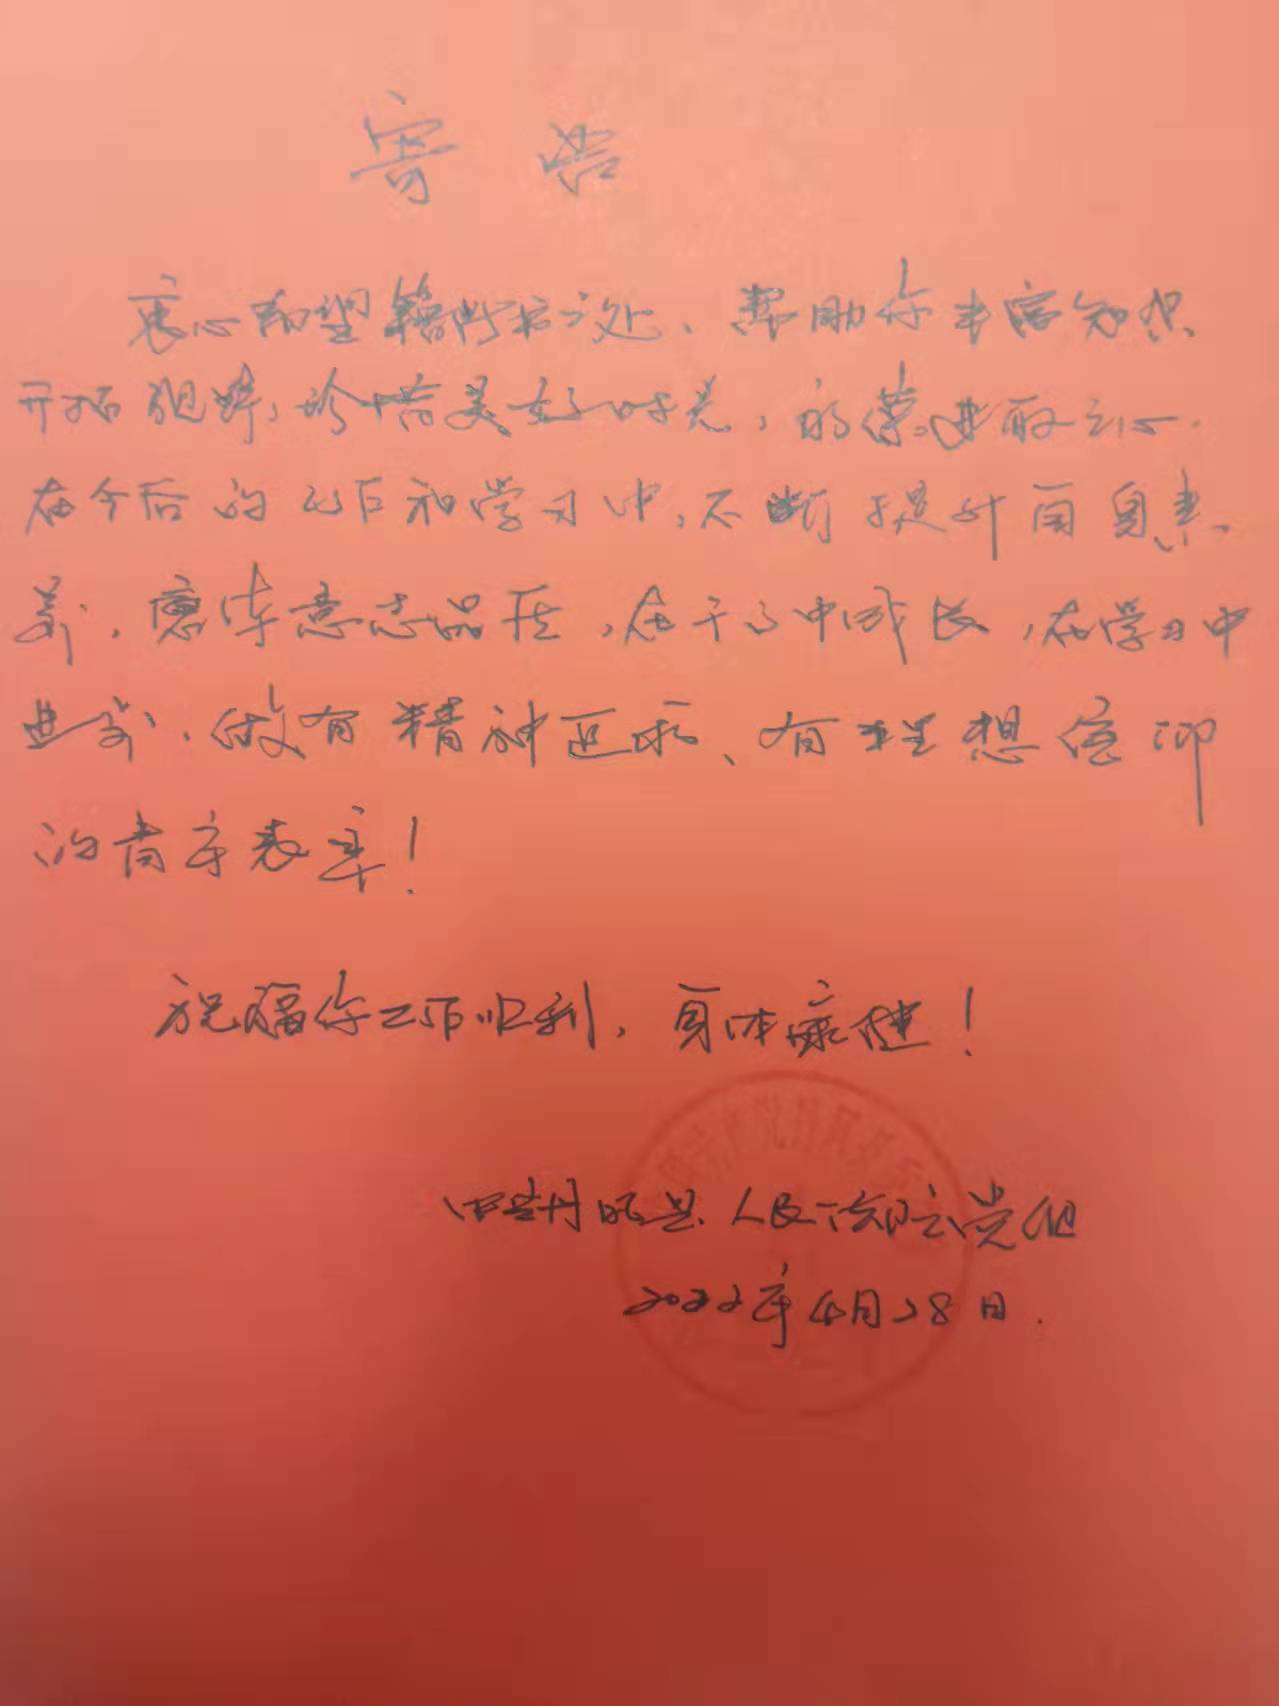 寄 告
衷心希望籍此书之处，帮助你丰富知识
开拓视野，珍惜美好时光，永葆进取之心.
在今后的工作和学习中，不断提升自身素
养，磨炼意志品质，在干事中成长，在学习中
进步，做有精神追求、有理想信仰
的青年表率！
祝福你工作顺利，身体康健！
县人民法院党组
2022年4月28日.